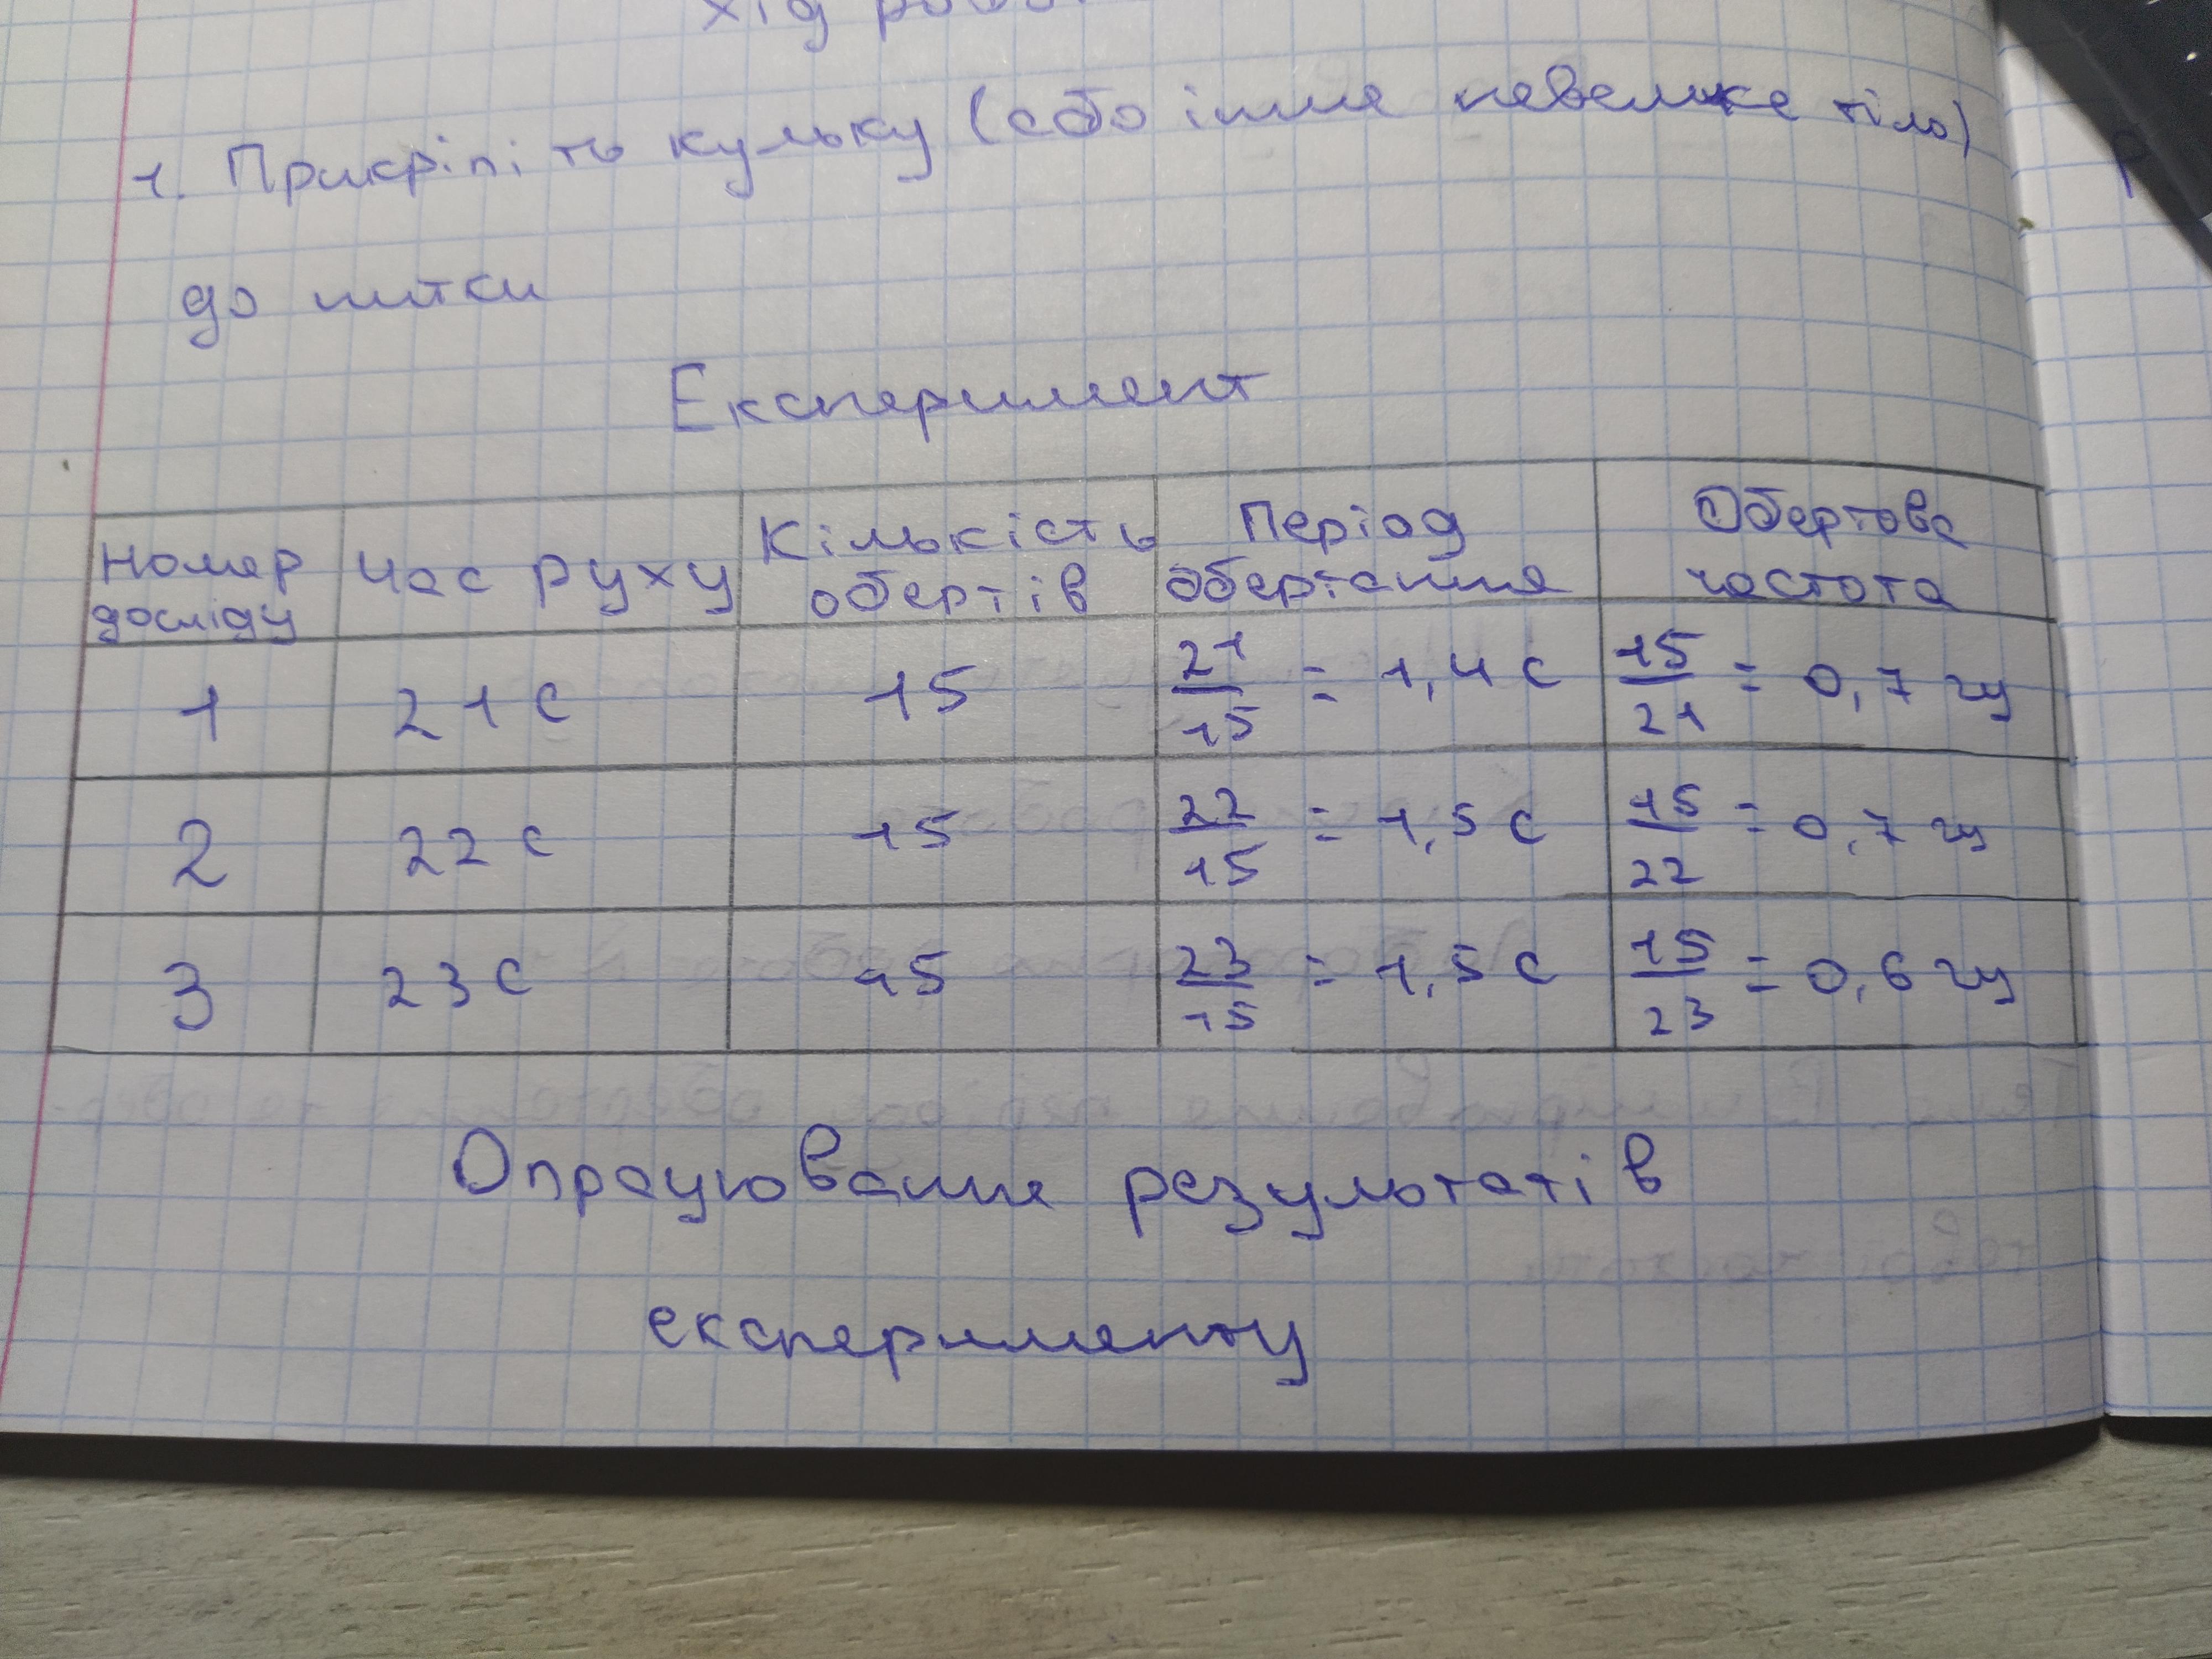 хід роботи
1. Прикріпіть кульку (або інше невелике тіло)
до нитки
Експеримент
Номер досліду | Час руху | Кількість обертів | Період обертання | Обертова частота
1 | 21 с | 15 | 21/15 = 1,4 с | 15/21 = 0,7 гц
2 | 22 с | 15 | 22/15 = 1,5 с | 15/22 = 0,7 гц
3 | 23 с | 15 | 23/15 = 1,5 с | 15/23 = 0,6 гц
Опрацювання результатів
експерименту